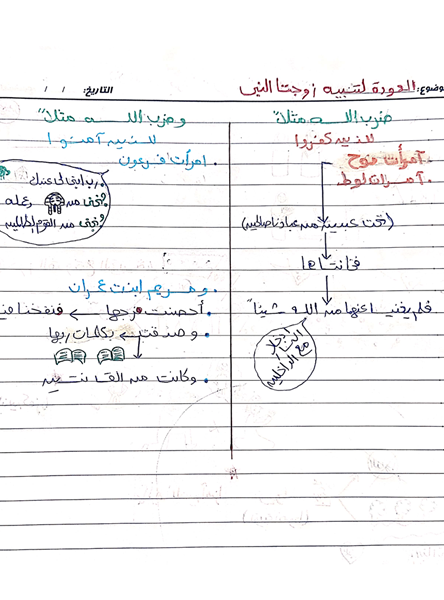 الموضوع: العودة لتنبيه زوجتا النبي
التاريخ: / /
ضرب الله مثلاً
للذين كفروا
امرأت نوح
امرأت لوط
(تحت عبدين من عبادنا صالحين)
فخانتاها
فلم يغنيا عنهما من الله شيئاً
ادخلا النار مع الداخلين
وضرب الله مثلاً
للذين آمنوا
امرأت فرعون
رب ابن لي عندك
ونجني من وعمله
ونجني من القوم الظالمين
ومريم ابنت عمران
أحصنت فرجها ← فنفخنا
وصدقت ← بكلمات ربها
وكانت من القانتين